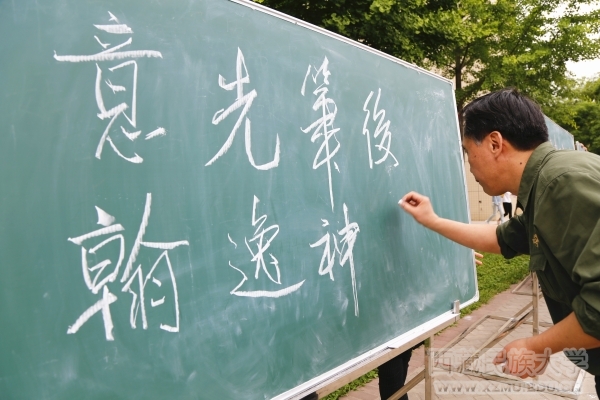 意先筆後
翰逸神
西藏民族大学
WWW.XZMU.EDU.CN